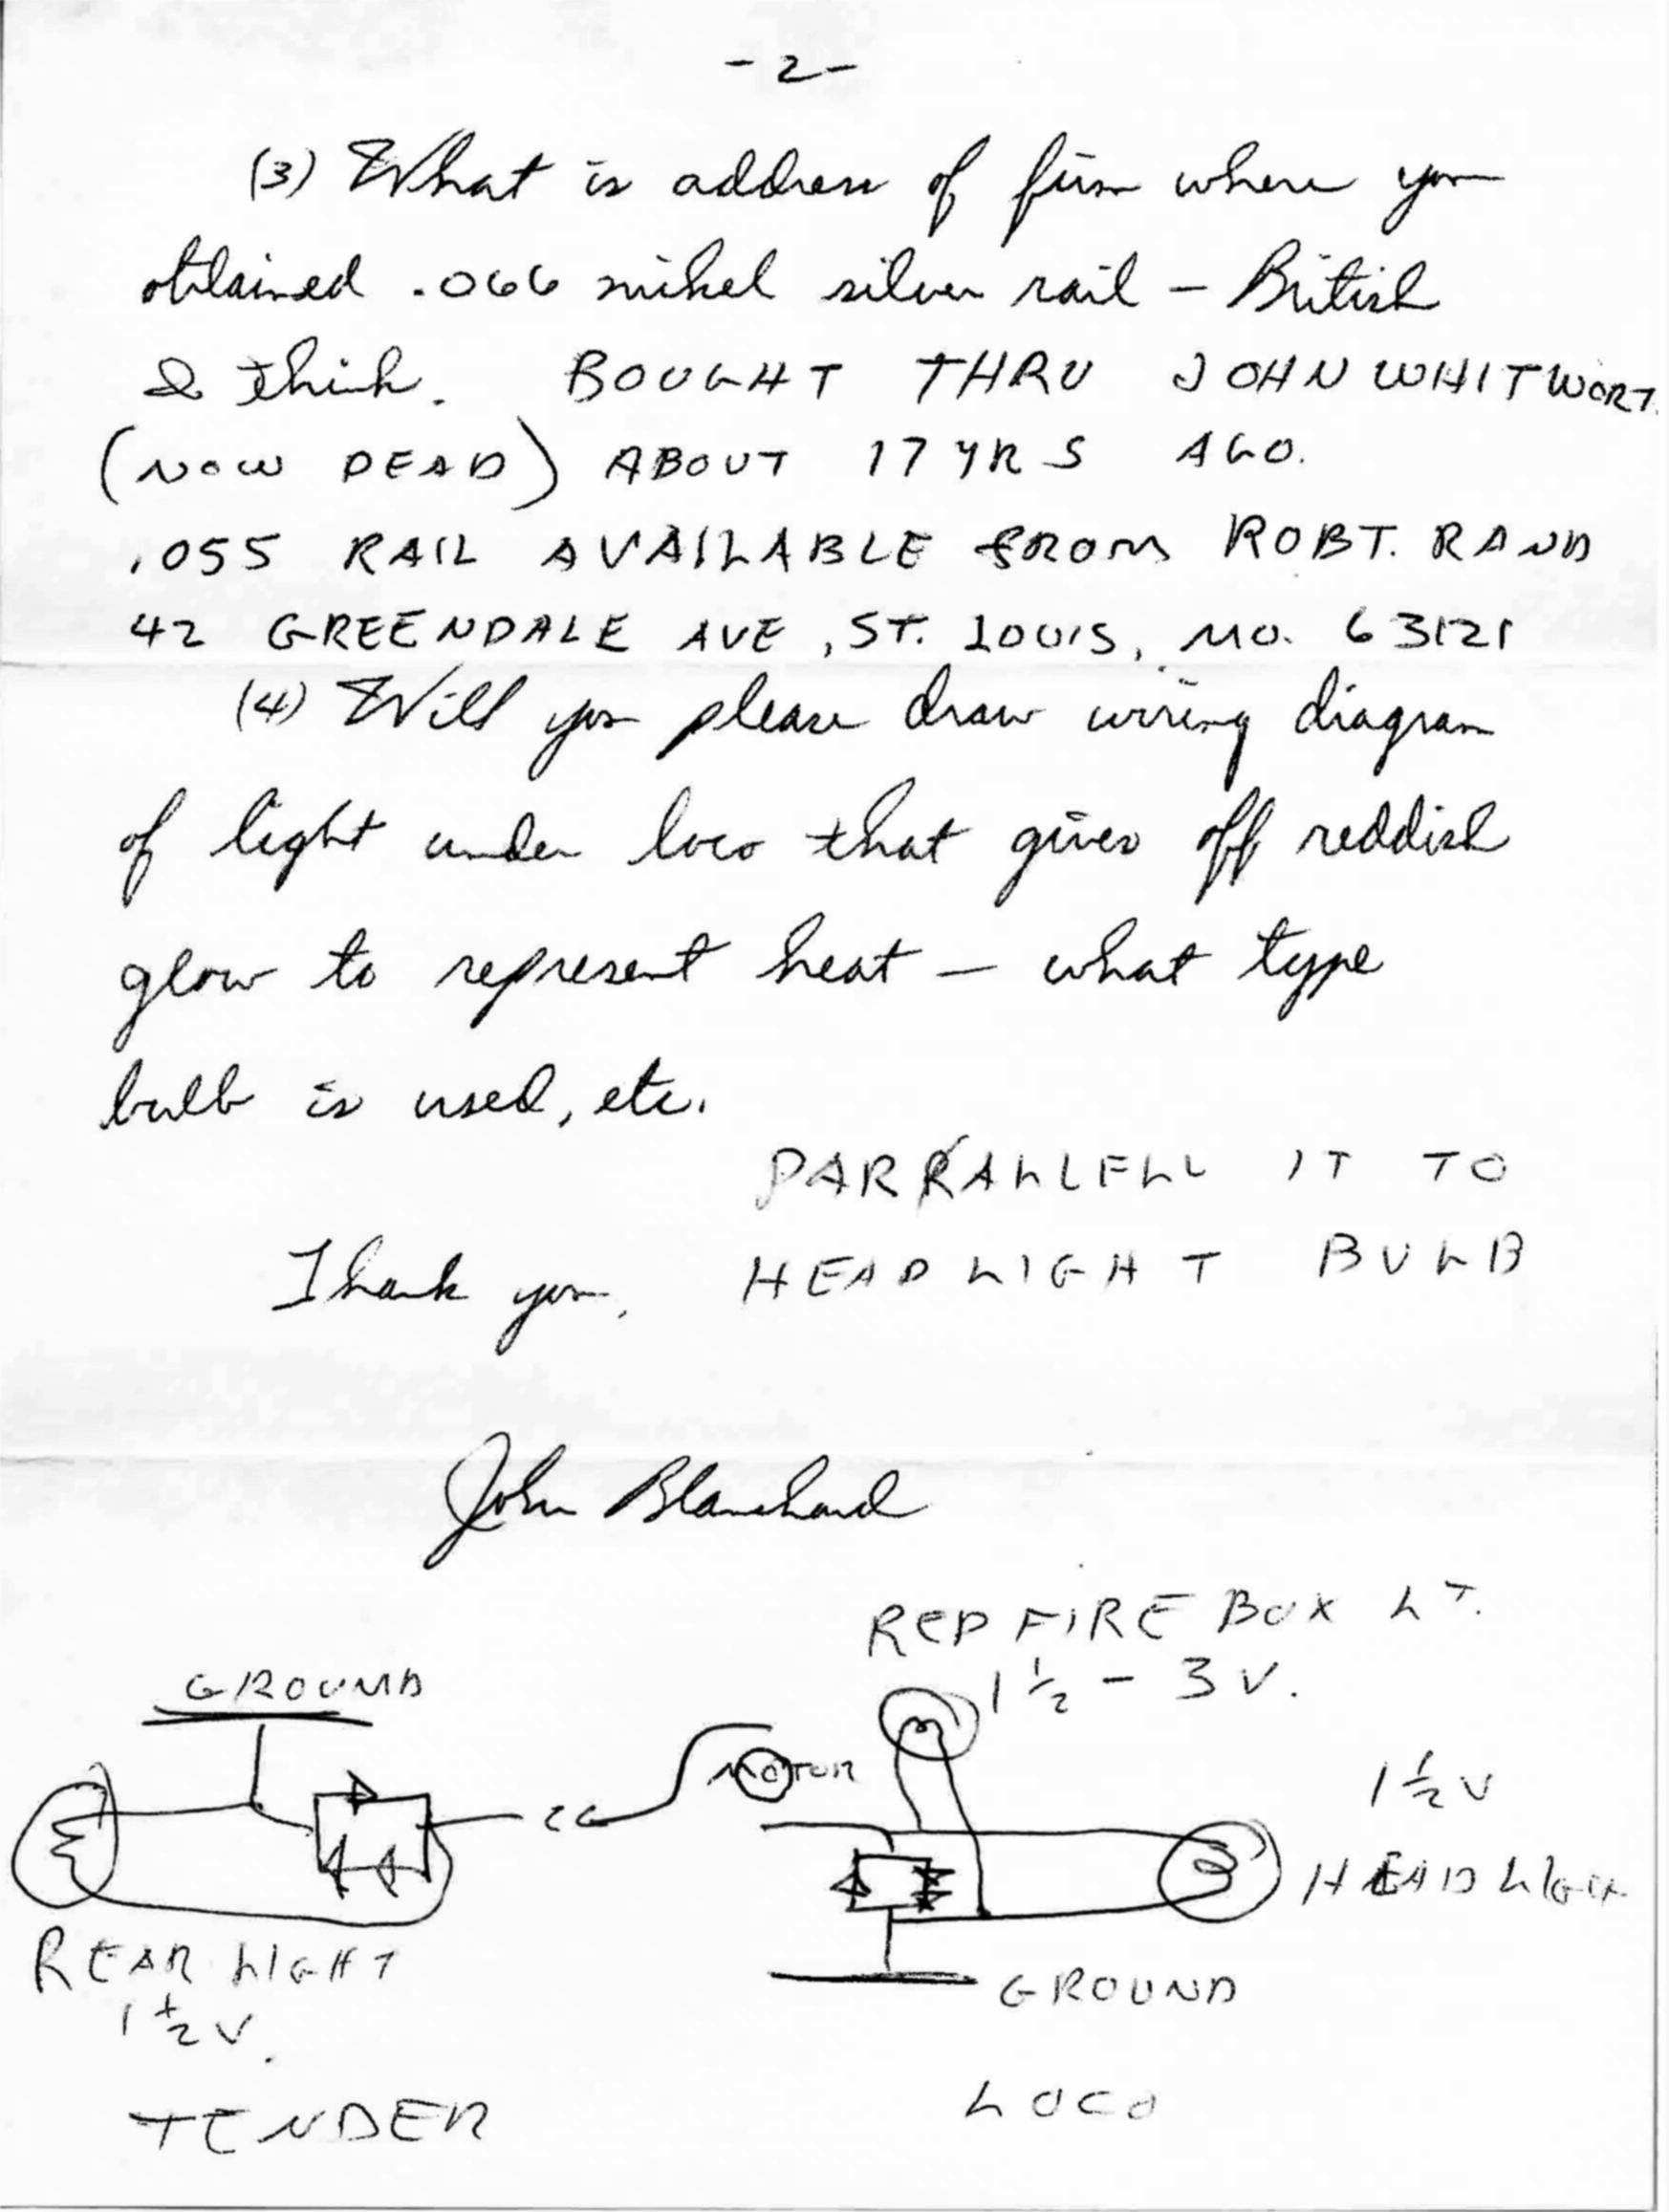 - 2 -
(3) What is address of firm where you
obtained .066 nickel silver rail - British
I think. BOUGHT THRU JOHN WHITWORT
(NOW DEAD) ABOUT 17 YRS AGO.
.055 RAIL AVAILABLE FROM ROBT. RAND
42 GREENDALE AVE, ST. LOUIS, MO. 63121
(4) Will you please draw wiring diagram
of light under loco that gives off reddish
glow to represent heat - what type
bulb is used, etc.
PARRALLELL IT TO
Thank you, HEADLIGHT BULB
John Blanchard
RED FIRE BOX LT.
1 1/2 - 3 V.
GROUND
MOTOR
1 1/2 V
HEADLIGHT
REAR LIGHT
1 1/2 V.
GROUND
TENDER
LOCO